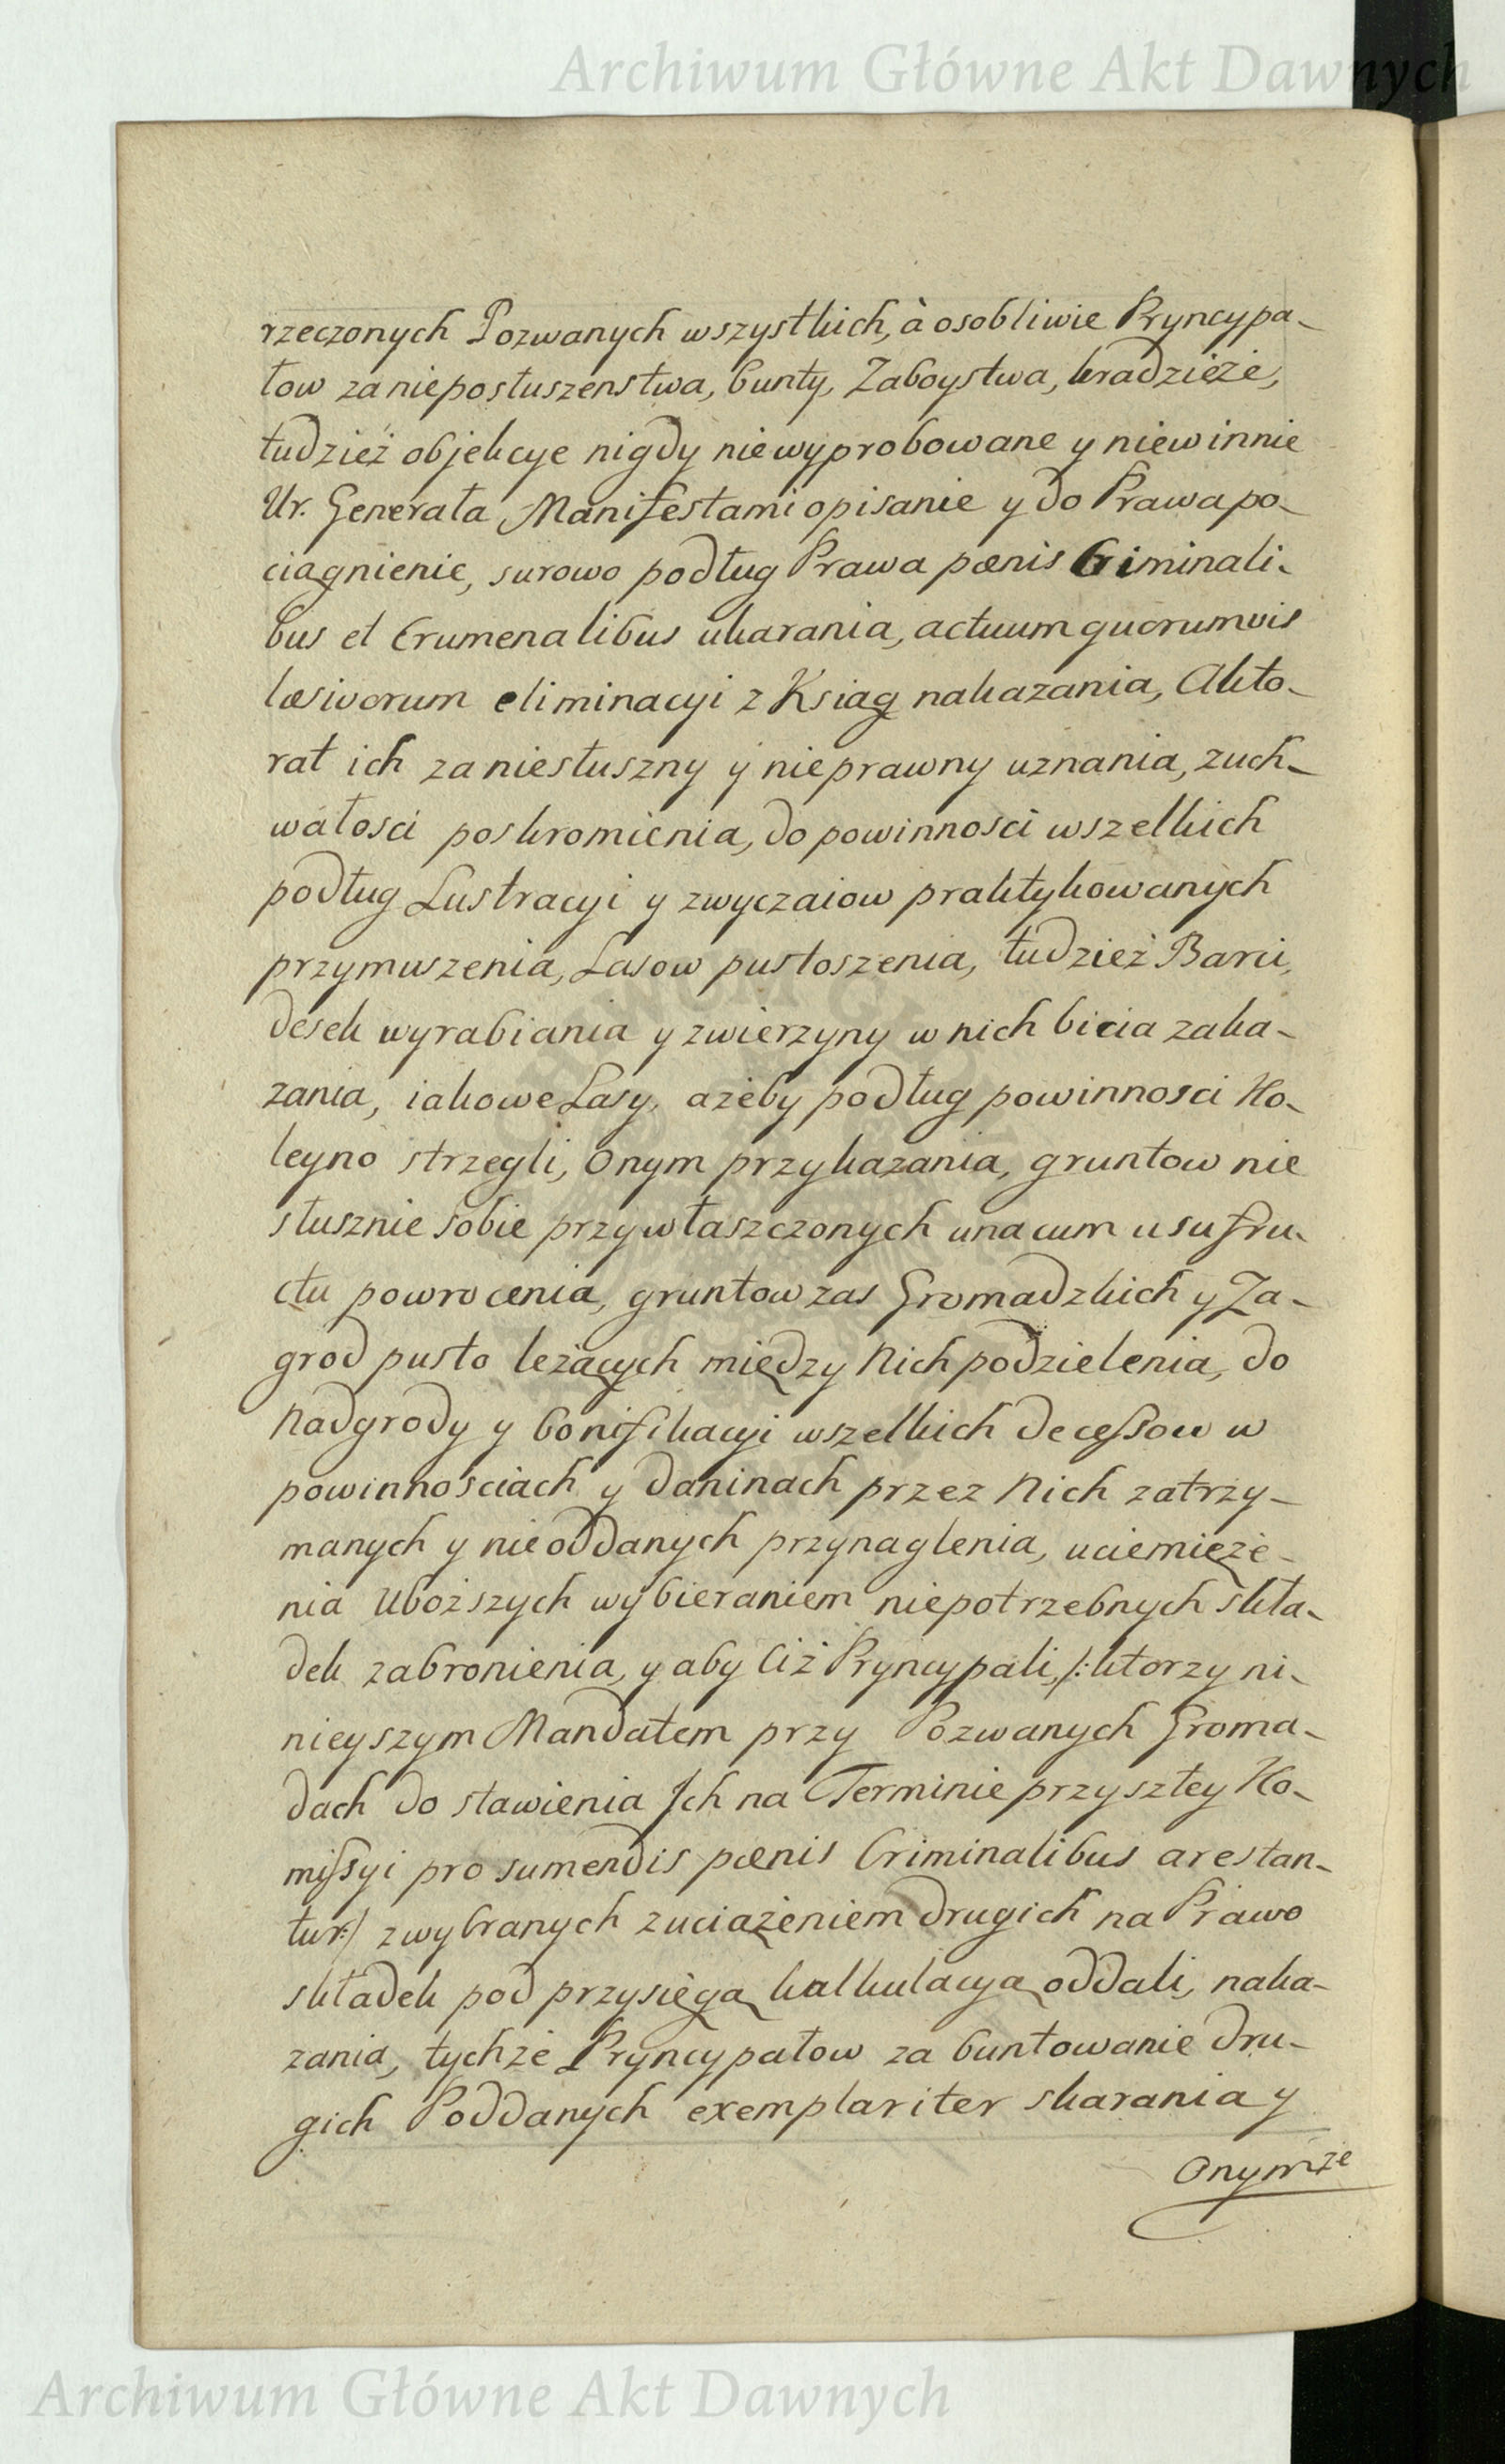 Archiwum Główne Akt Dawnych
rzeczonych Pozwanych wszystkich, à osobliwie Pryncypa-
łow za nieposłuszenstwa, bunty, Zaboystwa, kradzieże,
tudzież objekcye nigdy niewyprobowane y niewinnie
Ur. Generała Manifestami opisanie y do Prawa po-
ciągnienie, surowo podług Prawa pœnis Criminali-
bus et Crumenalibus ukarania, actuum quorumvis
læsivorum eliminacyi z Ksiąg nakazania, Akto-
rat ich za niesłuszny y nieprawny uznania, zuch-
wałosci poskromienia, do powinnosci wszelkich
podług Lustracyi y zwyczaiow praktykowanych
przymuszenia, Lasow pustoszenia, tudzież Barci,
desek wyrabiania y zwierzyny w nich bicia zaka-
zania, iakowe Lasy, ażeby podług powinnosci Ko-
leyno strzegli, Onym przykazania, gruntow nie
słusznie sobie przywłaszczonych una cum usufru-
ctu powrocenia, gruntow zas Gromadzkich y Za-
grod pusto leżących między Nich podzielenia, do
Nadgrody y bonifikacyi wszelkich decessow w
powinnosciach y daninach przez Nich zatrzy-
manych y nieoddanych przynaglenia, uciemięże-
nia Uboższych wybieraniem niepotrzebnych skła-
dek zabronienia, y aby Ciż Pryncypali, /: ktorzy ni-
nieyszym Mandatem przy Pozwanych Groma-
dach do stawienia Ich na Terminie przyszłey Ko-
missyi pro sumendis pœnis Criminalibus arestan-
tur :/ z wybranych z uciążeniem drugich na Prawo
składek pod przysięgą kalkulacyą oddali, naka-
zania, tychże Pryncypałow za buntowanie dru-
gich Poddanych exemplariter skarania y
Onymże
Archiwum Główne Akt Dawnych